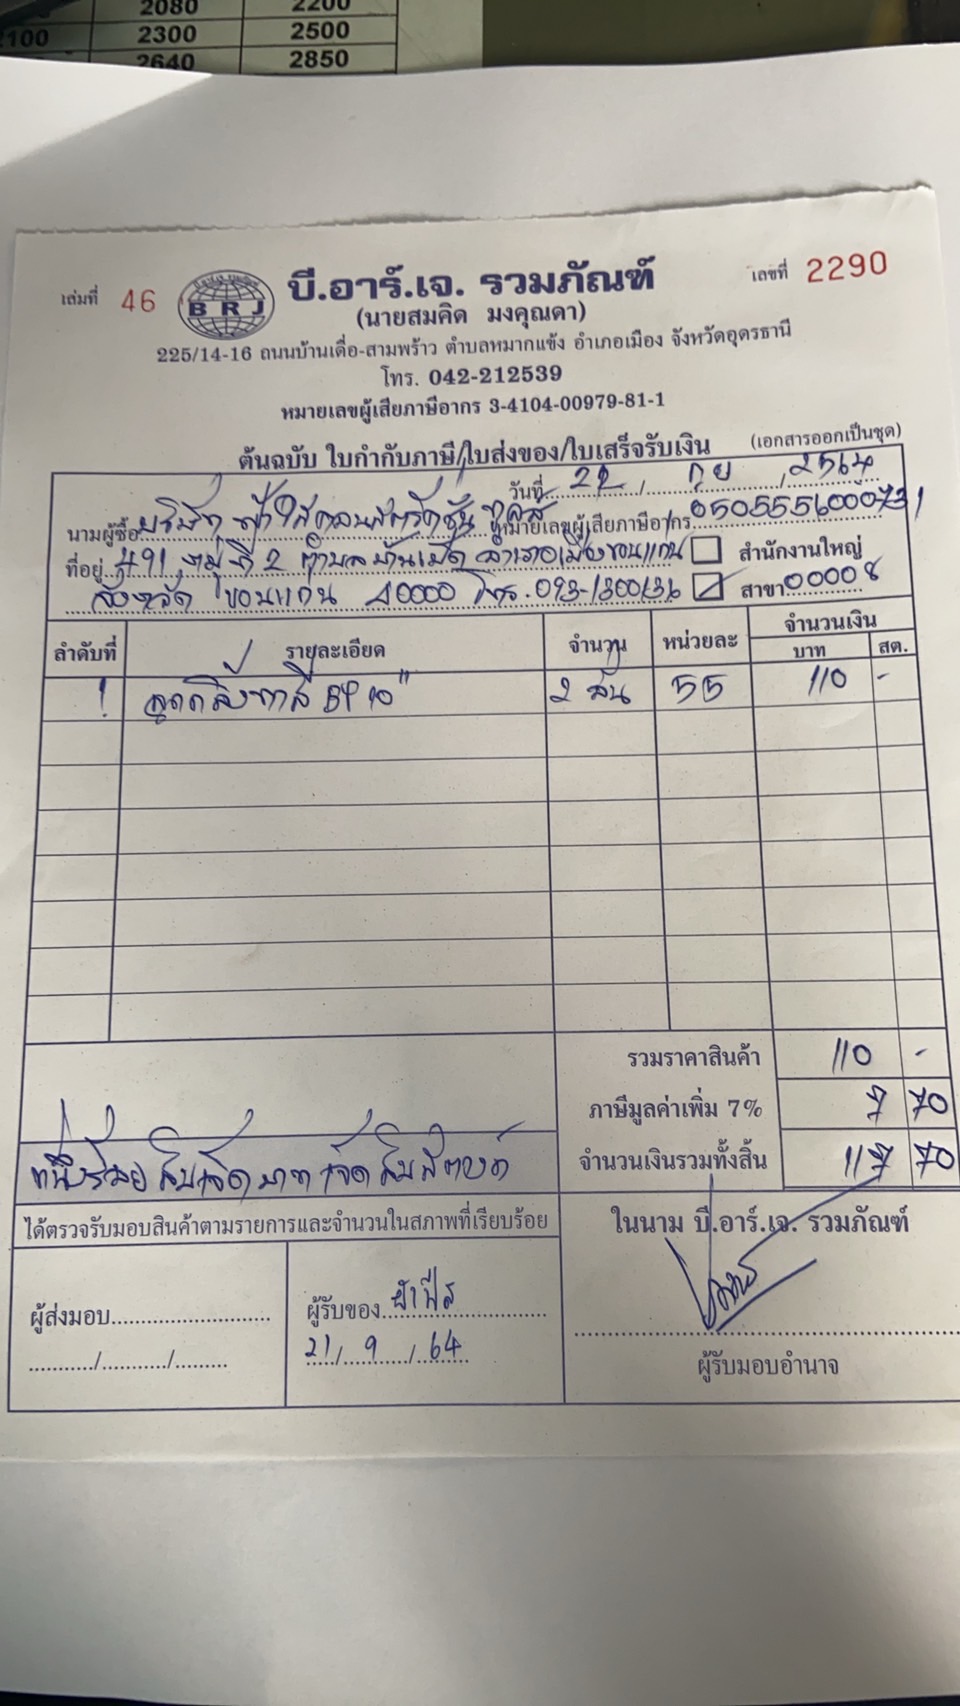 2080 2200
2100 2300 2500
2640 2850
เล่มที่ 46
BRJ
บี.อาร์.เจ. รวมภัณฑ์
เลขที่ 2290
(นายสมคิด มงคุณดา)
225/14-16 ถนนบ้านเดื่อ-สามพร้าว ตำบลหมากแข้ง อำเภอเมือง จังหวัดอุดรธานี
โทร. 042-212539
หมายเลขผู้เสียภาษีอากร 3-4104-00979-81-1
ต้นฉบับ ใบกำกับภาษี/ใบส่งของ/ใบเสร็จรับเงิน (เอกสารออกเป็นชุด)
วันที่ 22 / กย / 2564
นามผู้ซื้อ บริษัท ฟ้าใสคอนสตรัคชั่น พลัส หมายเลขผู้เสียภาษีอากร 0505556000731
ที่อยู่ 491 หมู่ที่ 2 ตำบลบ้านเป็ด อำเภอเมืองขอนแก่น สำนักงานใหญ่
จังหวัด ขอนแก่น 40000 โทร. 093-1300136 สาขา 00008
ลำดับที่ รายละเอียด จำนวน หน่วยละ จำนวนเงิน
บาท สต.
1 ลูกกลิ้งทาสี 10" 2 อัน 55 110 -
รวมราคาสินค้า 110 -
ภาษีมูลค่าเพิ่ม 7% 7 70
หนึ่งร้อยสิบเจ็ดบาทเจ็ดสิบสตางค์ จำนวนเงินรวมทั้งสิ้น 117 70
ได้ตรวจรับมอบสินค้าตามรายการและจำนวนในสภาพที่เรียบร้อย
ในนาม บี.อาร์.เจ. รวมภัณฑ์
ผู้ส่งมอบ
ผู้รับของ
21 / 9 / 64
ผู้รับมอบอำนาจ